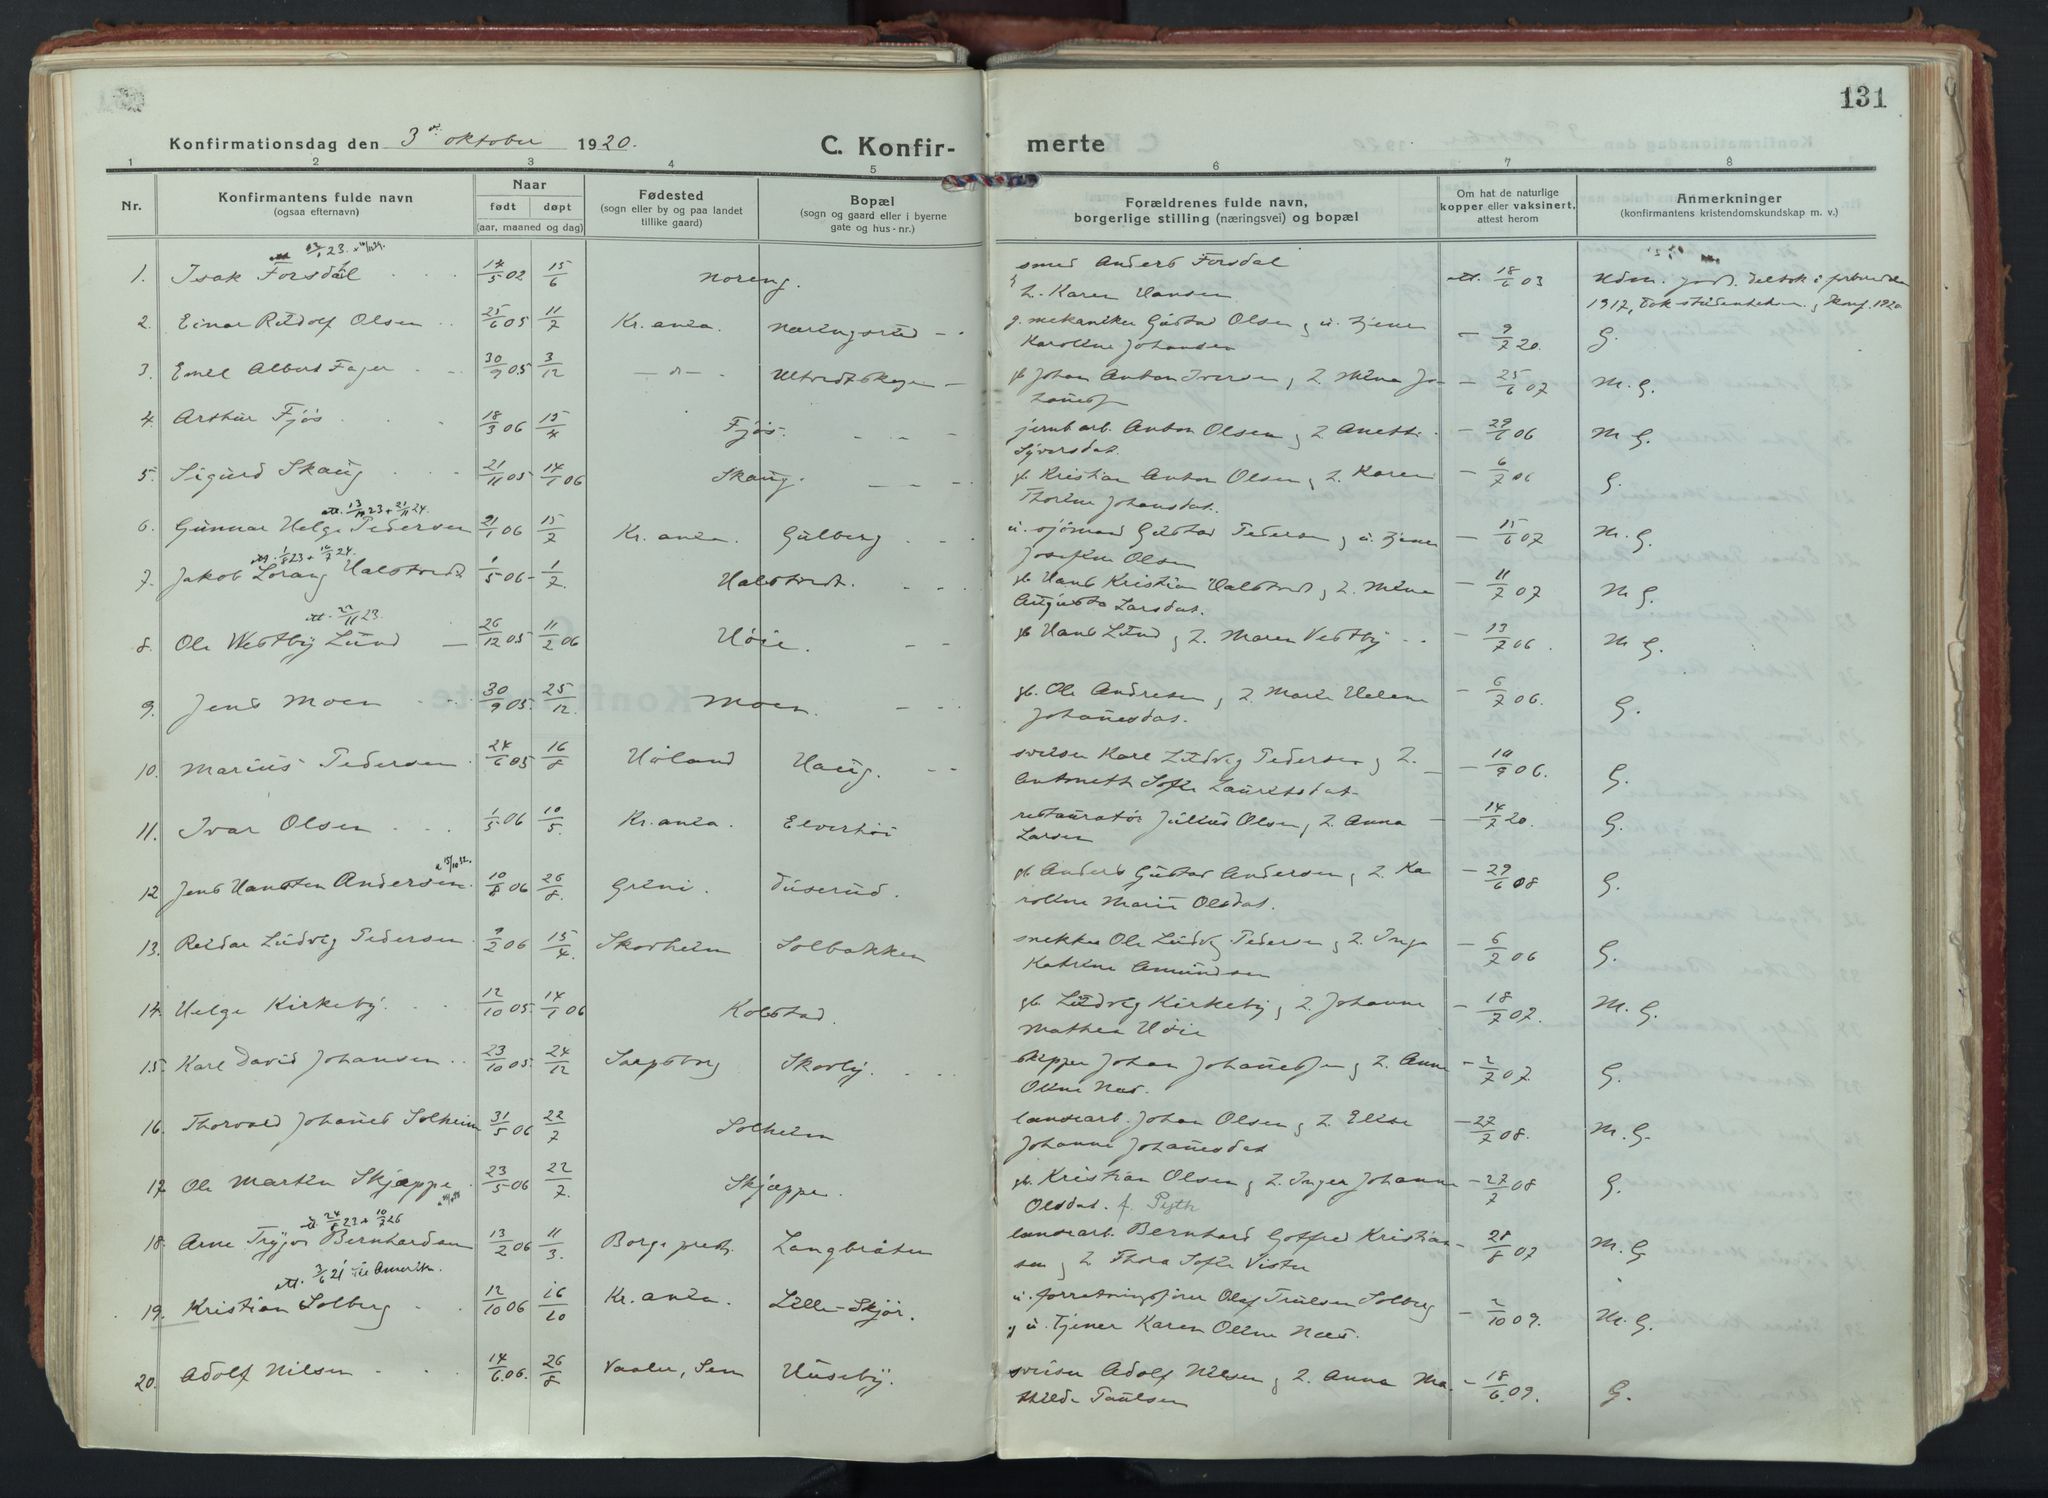 131
Konfirmationsdag den 3 oktober 1920.
C. Konfirmerte
1 2 3 4 5 6 7 8
Nr.
Konfirmantens fulde navn
(ogsaa efternavn)
Naar
født døpt
(aar, maaned og dag)
Fødested
(sogn eller by og paa landet
tillike gaard)
Bopæl
(sogn og gaard eller i byerne
gate og hus-nr.)
Forældrenes fulde navn,
borgerlige stilling (næringsvei) og bopæl
Om hat de naturlige
kopper eller vaksinert,
attest herom
Anmerkninger
(konfirmantens kristendomskundskap m. v.)
1. Isak Forsdal 14/5 02 15/6 Noreng. smed Anders Forsdal
Karen Hansen 18/6 03
2. Einar Reidolf Olsen 25/6 05 11/7 Kr.ania. Næringsrud g. mekaniker Gustav Olsen og u. tjener
Karoline Johansen 9/7 20. G.
3. Emil Albert Fager 30/9 05 3/12 Johan Anton Iversen og Mina Jo-
hannesd. 25/6 07 M. G.
4. Arthur Fjøs 18/3 06 15/4 Fjøs. jernb arb. Anton Olsen og Anette
Syversdat. 29/6 06 M G.
5. Sigurd Skaug 21/11 05 14/1 06 Skaug. gb. Kristian Anton Olsen og Karen
Thorine Johansdat. 6/7 06 G.
att. 13/10 23 + 21/11 24.
6. Gunnar Helge Pedersen 21/1 06 15/7 Kr.ania. Gulberg u. sjømand Gustav Pedersen og u. tjener
Josefine Olsen 15/6 07 M. G.
7. Jakob Lorang Halstvedt 1/5 06 1/7 Halstvedt. gb Hans Kristian Halstvedt og Mina
Augusta Larsdat. 11/7 07 M G.
att. 22/11 23.
8. Ole Westby Lund 26/12 05 11/2 06 Høie. gb Hans Lund og Maren Vestby 13/7 06. M G.
9. Jens Moen 30/9 05. 25/12. Moen. gb. Ole Andresen og Marte Helene
Johannesdat. 6/7 06. G.
10. Marius Pedersen 24/6 05 16/8 Høland Haug. sveiser Karl Ludvig Pedersen og
Antonette Sofie Lauritsdat. 19/9 06. G.
11. Ivar Olsen 1/5 06 10/5. Kr.ania. Elverhøi restauratør Julius Olsen og Anna
Larsen 14/7 20. G.
12 Jens Hansten Andersen 10/8 06 26/8. Grini. Duserud. gb Anders Gustav Andersen og Ka-
roline Marie Olsdat. 29/6 08 G.
13. Reidar Ludvig Pedersen 9/2 06 15/4. Skovheim Solbakken snekker Ole Ludvig Pedersen og Inga
Katrine Amundsen 6/7 06 G.
14. Helge Kirkeby. 12/10 05. 14/1 06 Kolstad. gb. Ludvig Kirkeby og Johanne
Mathea Høie 18/7 07. M. G.
15. Karl David Johansen 23/10 05. 24/12 Sarpsborg Skovly. skipper Johan Johannessen og Anne
Oline Næs. 2/7 07. G.
16. Thorvald Johannes Solheim 31/5 06 22/7 Solheim landearb. Johan Olsen og Elise
Johanne Johannesdat 27/7 08. M. G.
17. Ole Martin Skjæppe 23/5 06 22/7. Skjæppe. gb. Kristian Olsen og Inger Johanne
Olsdat. 27/7 08 G.
24/8 23 + 10/7 26
18. Arne Trygve Bernhardsen 13/2 06 11/3. Borge prest. Langbråten landearb. Bernhard Gotfred Kristian-
sen og Thora Sofie Vister 28/8 07 M. G
att. 3/6 21 til Amerika.
19. Kristian Solberg 12/10 06 16/10 Kr.ania. Lille-Skjør. u. forretningsfører Olaf Trulsen Solberg
og u. tjener Karen Oline Næs. 2/10 09. M. G.
20. Adolf Nilsen 14/6 06. 26/8 Vaaler, Sem Huseby. sveiser Adolf Nilsen og Anna Ma-
thilde Paulsen 18/6 09. G.